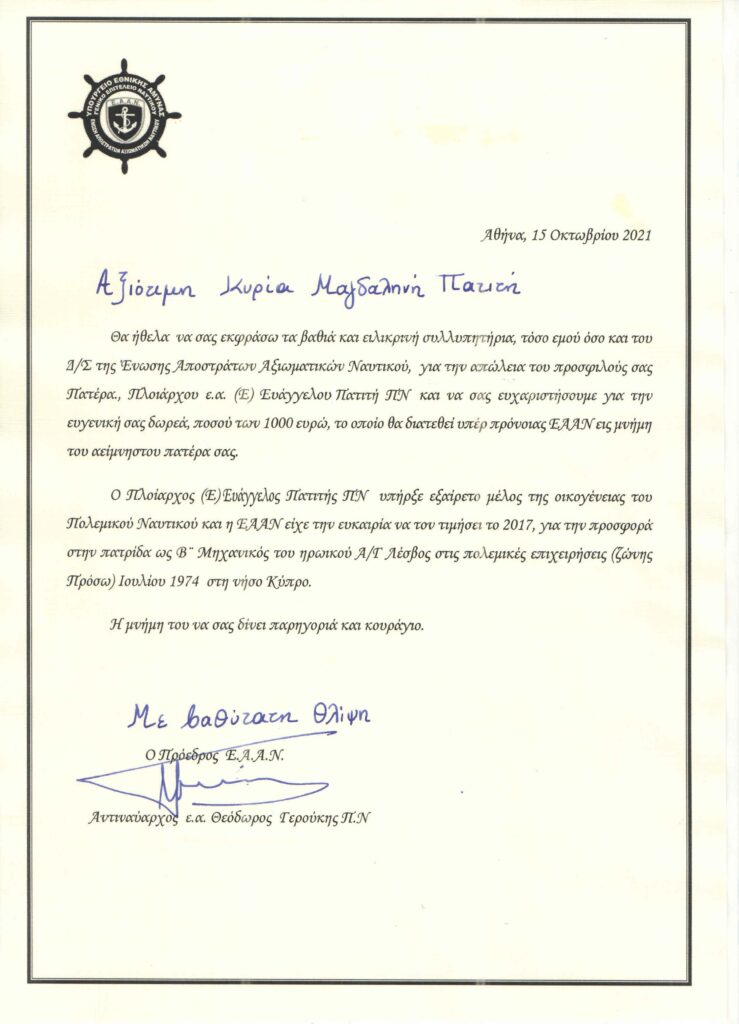 ΥΠΟΥΡΓΕΙΟ ΕΘΝΙΚΗΣ ΑΜΥΝΑΣ
ΓΕΝΙΚΟ ΕΠΙΤΕΛΕΙΟ ΝΑΥΤΙΚΟΥ
Ε.Α.Α.Ν.
ΕΝΩΣΗ ΑΠΟΣΤΡΑΤΩΝ ΑΞΙΩΜΑΤΙΚΩΝ ΝΑΥΤΙΚΟΥ
Αθήνα, 15 Οκτωβρίου 2021
Αξιότιμη Κυρία Μαγδαληνή Πατιτή
Θα ήθελα να σας εκφράσω τα βαθιά και ειλικρινή συλλυπητήρια, τόσο εμού όσο και του
Δ/Σ της Ένωσης Αποστράτων Αξιωματικών Ναυτικού, για την απώλεια του προσφιλούς σας
Πατέρα., Πλοιάρχου ε.α. (Ε) Ευάγγελου Πατιτή ΠΝ και να σας ευχαριστήσουμε για την
ευγενική σας δωρεά, ποσού των 1000 ευρώ, το οποίο θα διατεθεί υπέρ πρόνοιας ΕΑΑΝ εις μνήμη
του αείμνηστου πατέρα σας.
Ο Πλοίαρχος (Ε) Ευάγγελος Πατιτής ΠΝ υπήρξε εξαίρετο μέλος της οικογένειας του
Πολεμικού Ναυτικού και η ΕΑΑΝ είχε την ευκαιρία να τον τιμήσει το 2017, για την προσφορά
στην πατρίδα ως Β¨ Μηχανικός του ηρωικού Α/Γ Λέσβος στις πολεμικές επιχειρήσεις (ζώνης
Πρόσω) Ιουλίου 1974 στη νήσο Κύπρο.
Η μνήμη του να σας δίνει παρηγοριά και κουράγιο.
Με βαθύτατη θλίψη
Ο Πρόεδρος Ε.Α.Α.Ν.
Αντιναύαρχος ε.α. Θεόδωρος Γερούκης Π.Ν